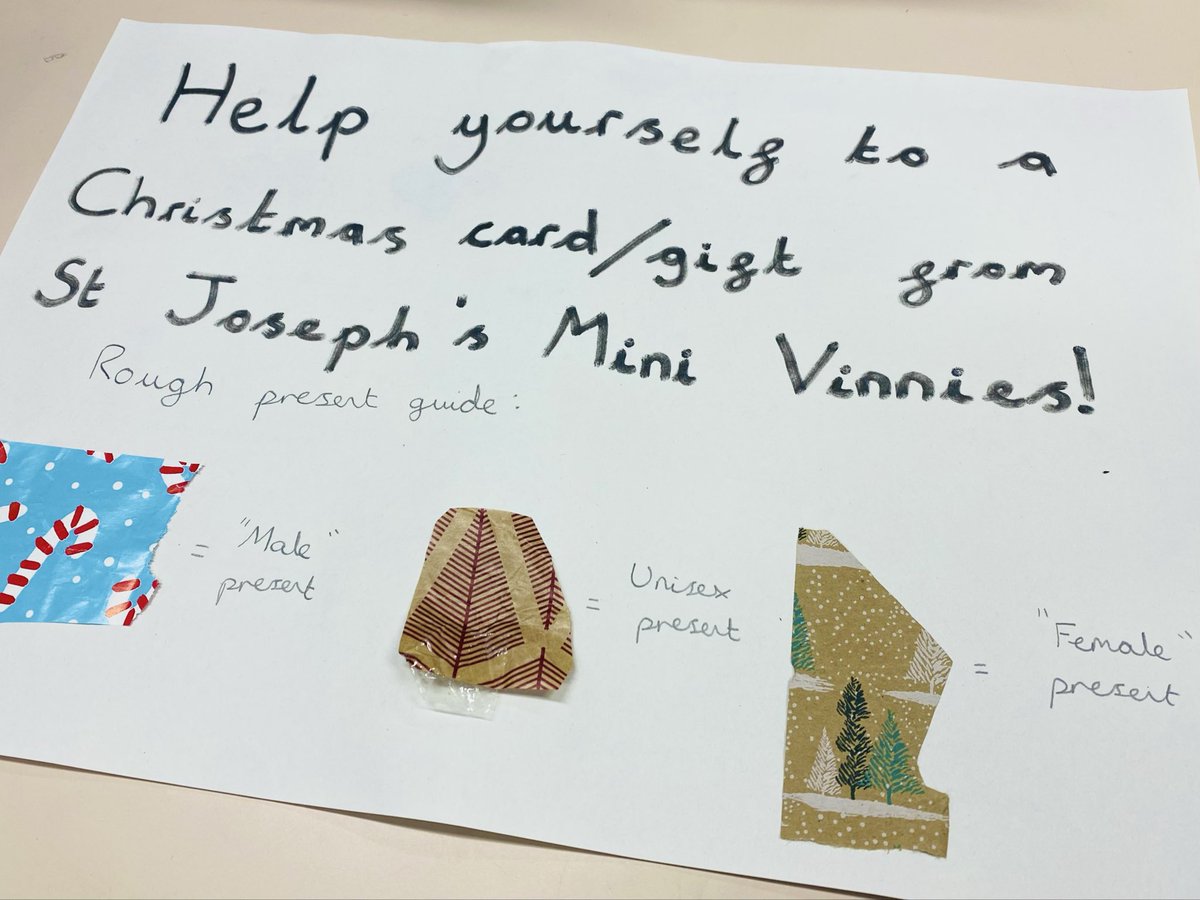 Help yourself to a
Christmas card/gift from
St Joseph's Mini Vinnies!
Rough present guide:
= "Male"
present
= Unisex
present
= "Female"
present